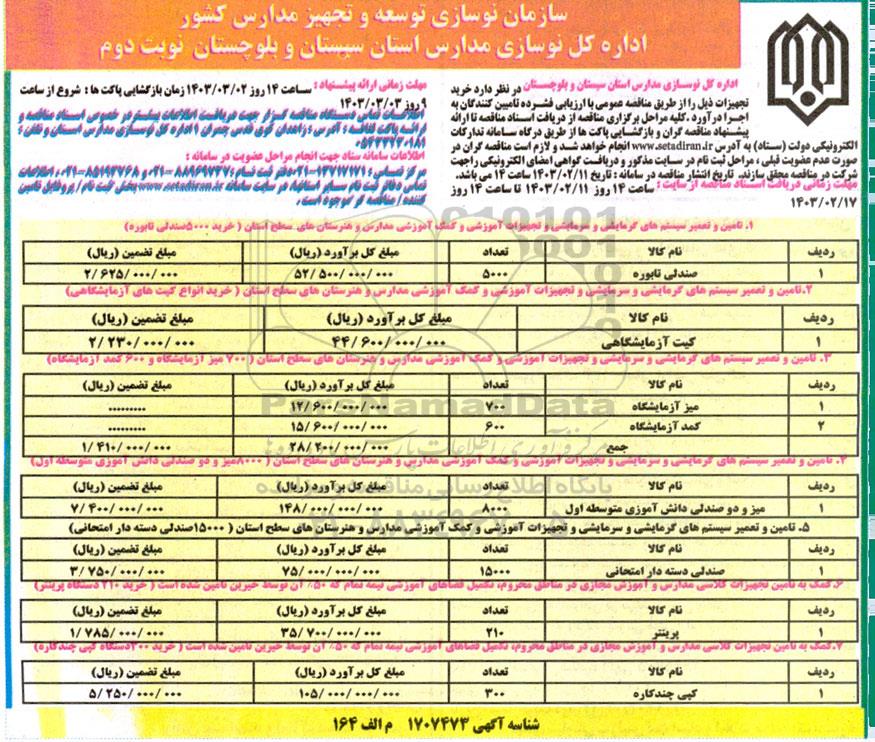 سازمان نوسازی توسعه و تجهیز مدارس کشور
اداره کل نوسازی مدارس استان سیستان و بلوچستان نوبت دوم
اداره کل نوسازی مدارس استان سیستان و بلوچستان در نظر دارد خرید
تجهیزات ذیل را از طریق مناقصه عمومی با ارزیابی فشرده تامین کنندگان به
اجرا درآورد. کلیه مراحل برگزاری مناقصه از دریافت اسناد مناقصه تا ارائه
پیشنهاد مناقصه گران و بازگشایی پاکت ها از طریق درگاه سامانه تدارکات
الکترونیکی دولت (ستاد) به آدرس www.setadiran.ir انجام خواهد شد و لازم است مناقصه گران در
صورت عدم عضویت قبلی، مراحل ثبت نام در سایت مذکور و دریافت گواهی امضای الکترونیکی راجهت
شرکت در مناقصه محقق سازند. تاریخ انتشار مناقصه در سامانه: تاریخ ۱۴۰۳/۰۲/۱۱ ساعت ۱۴ می باشد.
مهلت زمانی دریافت اسناد مناقصه از سایت: ساعت ۱۴ روز ۱۴۰۳/۰۲/۱۱ تا ساعت ۱۴ روز
۱۴۰۳/۰۲/۱۷
مهلت زمانی ارائه پیشنهاد: ساعت ۱۴ روز ۱۴۰۳/۰۳/۰۲ زمان بازگشایی پاکت ها: شروع از ساعت
۹ روز ۱۴۰۳/۰۳/۰۳
اطلاعات تماس دستگاه مناقصه گزار جهت دریافت اطلاعات بیشتر در خصوص اسناد مناقصه و
ارائه پاکت الف: آدرس: زاهدان کوی قدس چمران ۱ اداره کل نوسازی مدارس استان و تلفن:
اطلاعات سامانه ستاد جهت انجام مراحل عضویت در سامانه:
مرکز تماس: دفتر ثبت نام: ۸۸۹۶۹۷۳۷ و ۸۵۱۹۳۷۶۸-۰۲۱، اطلاعات
تماس دفاتر ثبت نام سایر استانها، در سایت سامانه www.setadiran.ir بخش ثبت نام / پروفایل تامین
کننده / مناقصه گر موجود است.
۱. تامین و تعمیر سیستم های گرمایشی و سرمایشی و تجهیزات آموزشی و کمک آموزشی مدارس و هنرستان های سطح استان ( خرید ۵۰۰۰صندلی تابوره)
ردیف نام کالا تعداد مبلغ کل برآورد (ریال) مبلغ تضمین (ریال)
۱ صندلی تابوره ۵۰۰۰ ۵۲/۵۰۰/۰۰۰/۰۰۰ ۲/۶۲۵/۰۰۰/۰۰۰
۲.تامین و تعمیر سیستم های گرمایشی و سرمایشی و تجهیزات آموزشی و کمک آموزشی مدارس و هنرستان های سطح استان ( خرید انواع کیت های آزمایشگاهی)
ردیف نام کالا مبلغ کل برآورد (ریال) مبلغ تضمین (ریال)
۱ کیت آزمایشگاهی ۴۴/۶۰۰/۰۰۰/۰۰۰ ۲/۲۳۰/۰۰۰/۰۰۰
۳. تامین و تعمیر سیستم های گرمایشی و سرمایشی و تجهیزات آموزشی و کمک آموزشی مدارس و هنرستان های سطح استان ( ۷۰۰ میز آزمایشگاه و ۶۰۰ کمد آزمایشگاه)
ردیف نام کالا تعداد مبلغ کل برآورد (ریال) مبلغ تضمین (ریال)
۱ میز آزمایشگاه ۷۰۰ ۱۲/۶۰۰/۰۰۰/۰۰۰ ..........
۲ کمد آزمایشگاه ۶۰۰ ۱۵/۶۰۰/۰۰۰/۰۰۰ ..........
جمع ۲۸/۲۰۰/۰۰۰/۰۰۰ ۱/۴۱۰/۰۰۰/۰۰۰
۴. تامین و تعمیر سیستم های گرمایشی و سرمایشی و تجهیزات آموزشی و کمک آموزشی مدارس و هنرستان های سطح استان ( ۸۰۰۰میز و دو صندلی دانش آموزی متوسطه اول)
ردیف نام کالا تعداد مبلغ کل برآورد (ریال) مبلغ تضمین (ریال)
۱ میز و دو صندلی دانش آموزی متوسطه اول ۸۰۰۰ ۱۴۸/۰۰۰/۰۰۰/۰۰۰ ۷/۴۰۰/۰۰۰/۰۰۰
۵. تامین و تعمیر سیستم های گرمایشی و سرمایشی و تجهیزات آموزشی و کمک آموزشی مدارس و هنرستان های سطح استان ( ۱۵۰۰۰صندلی دسته دار امتحانی)
ردیف نام کالا تعداد مبلغ کل برآورد (ریال) مبلغ تضمین (ریال)
۱ صندلی دسته دار امتحانی ۱۵۰۰۰ ۷۵/۰۰۰/۰۰۰/۰۰۰ ۳/۷۵۰/۰۰۰/۰۰۰
۶.کمک به تامین تجهیزات کلاسی مدارس و آموزش مجازی در مناطق محروم، تکمیل فضاهای آموزشی نیمه تمام که ۵۰٪ آن توسط خیرین تامین شده است ( خرید ۲۱۰ دستگاه پرینتر)
ردیف نام کالا تعداد مبلغ کل برآورد (ریال) مبلغ تضمین (ریال)
۱ پرینتر ۲۱۰ ۳۵/۷۰۰/۰۰۰/۰۰۰ ۱/۷۸۵/۰۰۰/۰۰۰
۷.کمک به تامین تجهیزات کلاسی مدارس و آموزش مجازی در مناطق محروم، تکمیل فضاهای آموزشی نیمه تمام که ۵۰٪ آن توسط خیرین تامین شده است ( خرید ۳۰۰دستگاه کپی چندکاره)
ردیف نام کالا تعداد مبلغ کل برآورد (ریال) مبلغ تضمین (ریال)
۱ کپی چندکاره ۳۰۰ ۱۰۵/۰۰۰/۰۰۰/۰۰۰ ۵/۲۵۰/۰۰۰/۰۰۰
شناسه آگهی ۱۷۰۷۴۷۳ م الف ۱۶۴
ParsNamadData
پایگاه اطلاع رسانی مناقصه